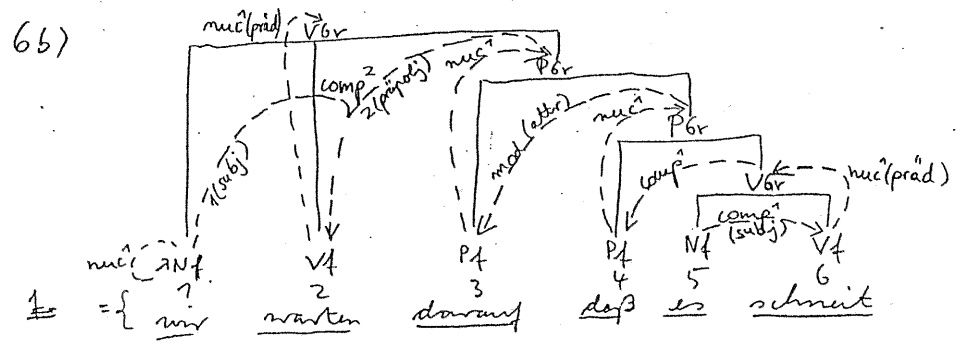 6b)
nuc¹(präd) VGr
comp² nuc¹ PGr
1(subj) 2(präpobj)
mod (attr) nuc¹ PGr
comp¹ VGr nuc¹(präd)
comp¹
(subj)
nuc¹ Nf Vf Pf Pf Nf Vf
1 2 3 4 5 6
1. = { wir warten darauf daß es schneit